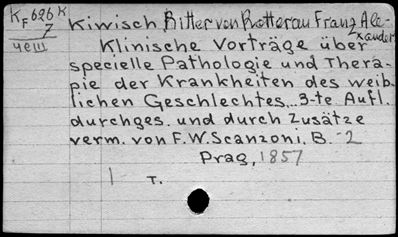 KF 626 K
7
чеш
Kiwisch Ritter von Rotterau Franz Ale-
xander
Klinische Vorträge über
specielle Pathologie und Thera-
pie der Krankheiten des weib-
lichen Geschlechtes...3-te Aufl.
durchges. und durch Zusätze
verm. von F.W. Scanzoni, B. -2
Prag, 1857
1- T.